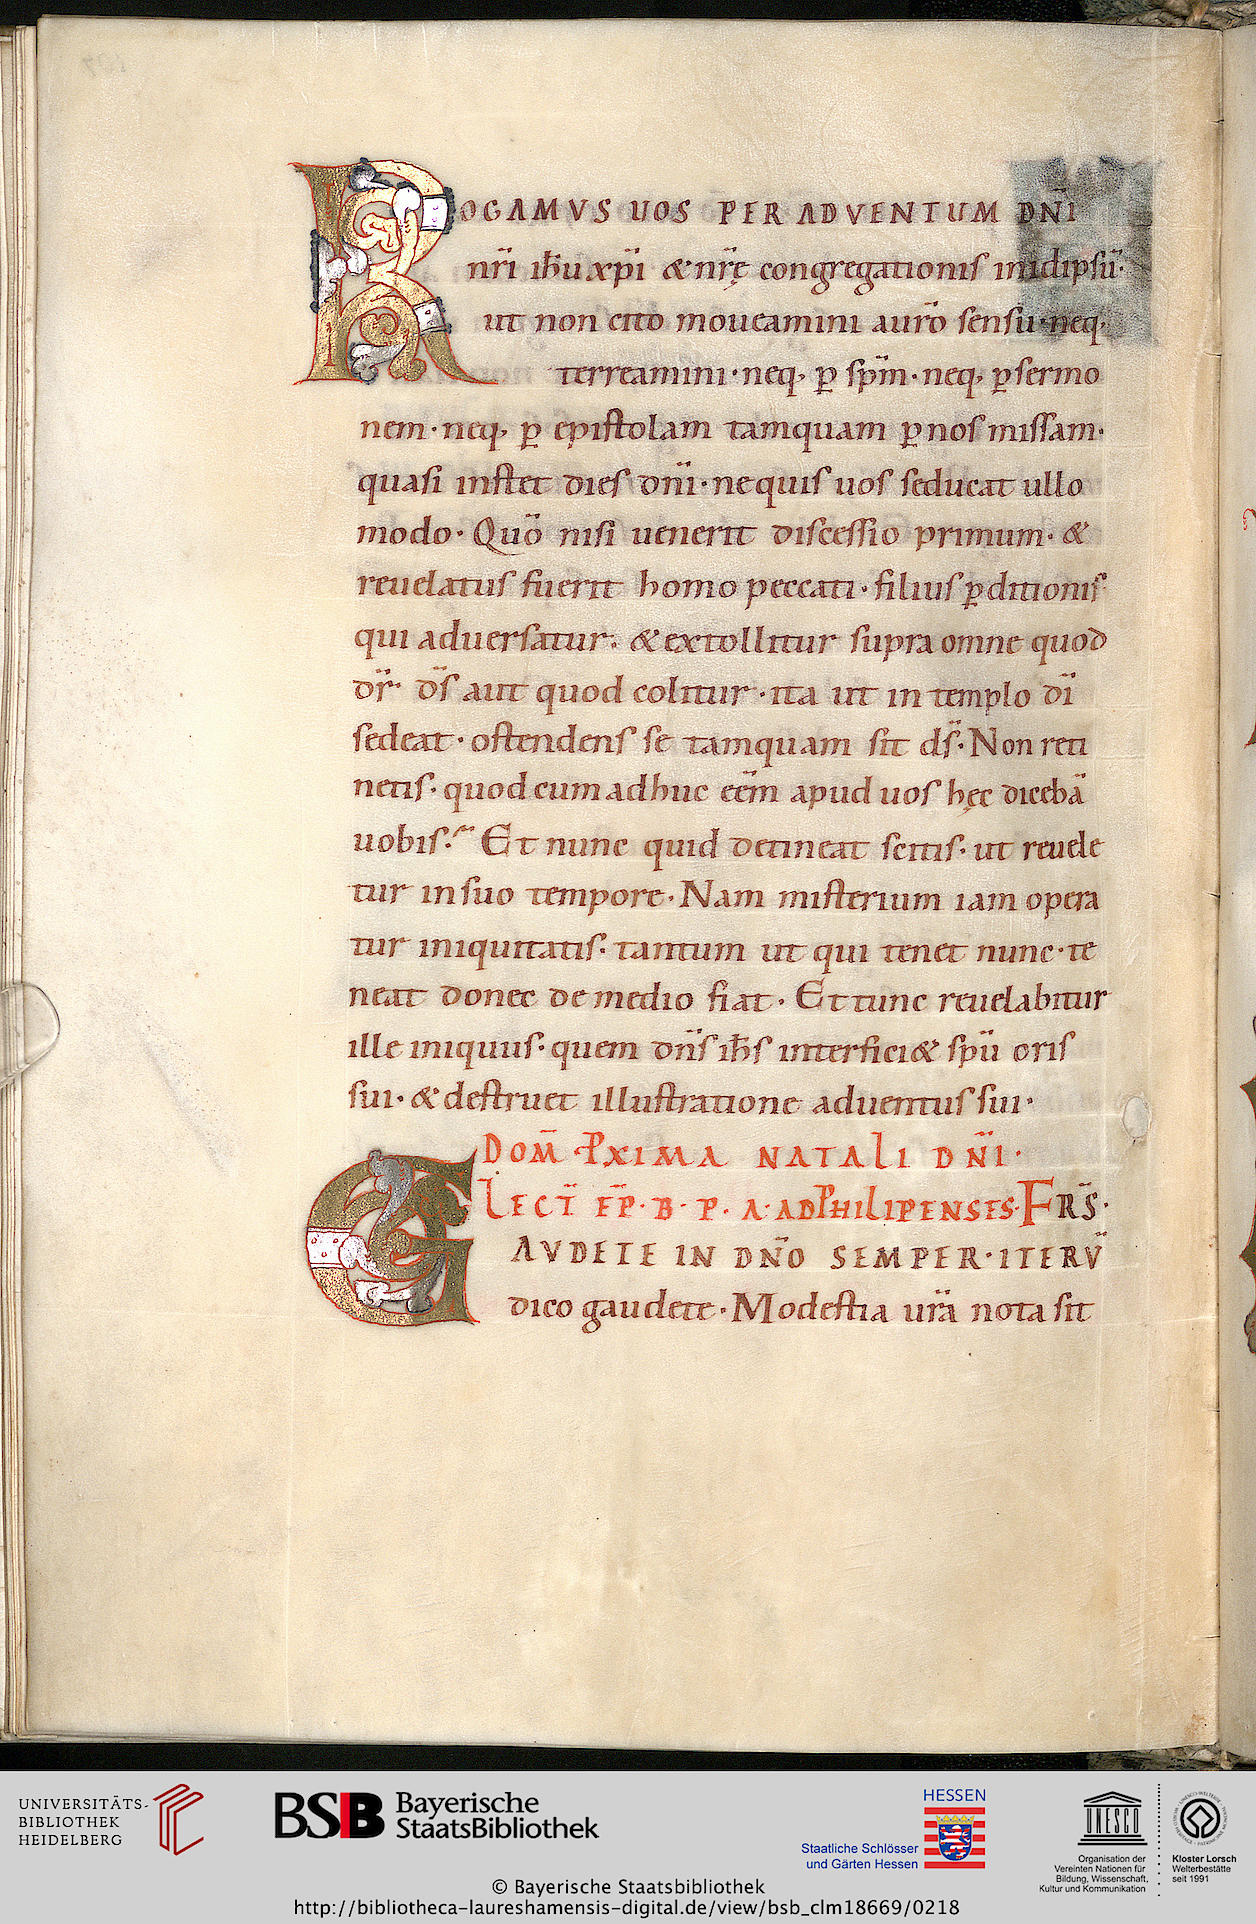 ROGAMVS UOS PER ADVENTUM DNI
nr̄i ih̄u xp̄i & nr̄ę congregationis inidipsū·
ut non cito moueamini aurō sensu· neq·
terreamini· neq· ꝑ sp̄m· neq· ꝑ sermo
nem· neq· ꝑ epistolam tamquam ꝑ nos missam·
quasi instet dies dn̄i· nequis uos seducat ullo
modo· Quō nisi uenerit discessio primum· &
reuelatus fuerit homo peccati· filius ꝑditionis
qui aduersatur· & extollitur supra omne quod
dr̄· d̄s aut quod colitur· ita ut in templo dī
sedeat· ostendens se tamquam sit ds̄· Non reti
netis· quod cum adhuc eēm apud uos hęc dicebā
uobis· Et nunc quid detineat scitis· ut reuele
tur in suo tempore· Nam misterium iam opera
tur iniquitatis· tantum ut qui tenet nunc· te
neat donec de medio fiat· Et tunc reuelabitur
ille iniquus· quem dn̄s ih̄s interfici& spū oris
sui· & destruet illustratione aduentus sui·
DOM̄ · PXIMA NATALI DN̄I·
LECT̄ EP̄· B· P· A· AD PHILIPENSES· FRS̄·
GAVDETE IN DN̄O SEMPER· ITERV̄
dico gaudete· Modestia ur̄a nota sit
UNIVERSITÄTS-
BIBLIOTHEK
HEIDELBERG
BSB Bayerische
StaatsBibliothek
HESSEN
Staatliche Schlösser
und Gärten Hessen
UNESCO
Organisation der
Vereinten Nationen für
Bildung, Wissenschaft,
Kultur und Kommunikation
Kloster Lorsch
Welterbestätte
seit 1991
© Bayerische Staatsbibliothek
http://bibliotheca-laureshamensis-digital.de/view/bsb_clm18669/0218